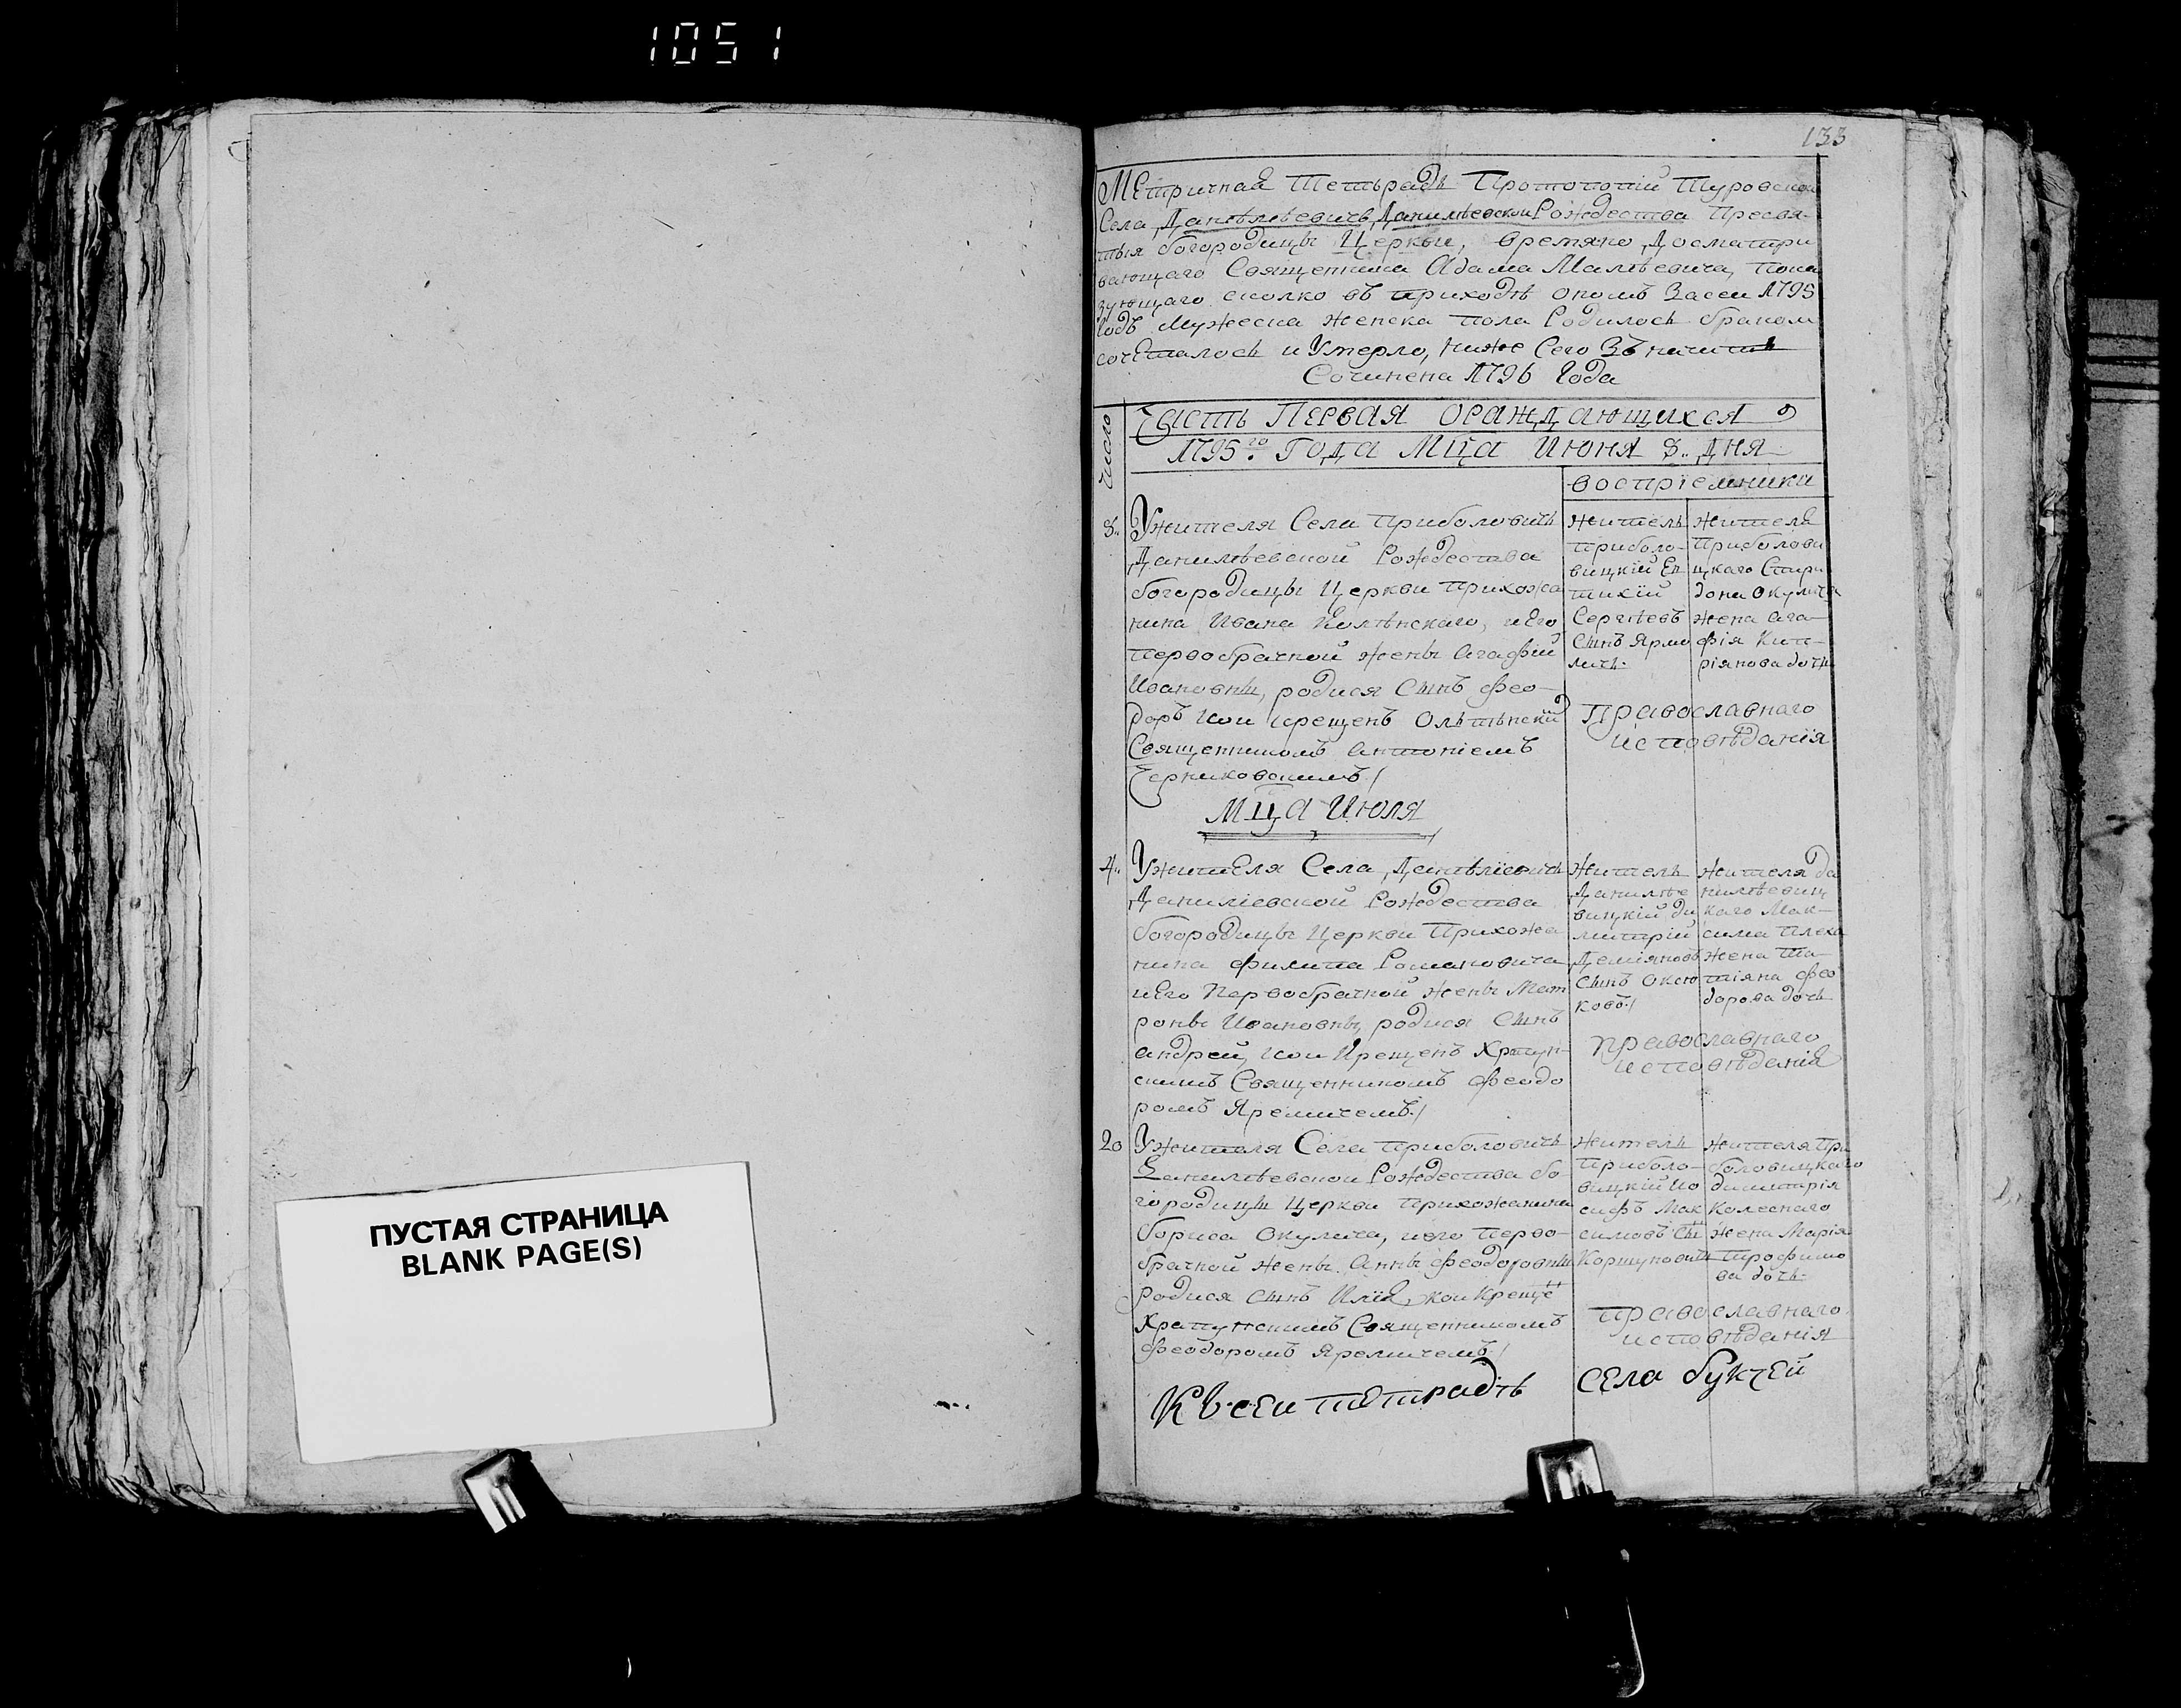 1051
ПУСТАЯ СТРАНИЦА
BLANK PAGE(S)
133
Метричная Тетьрадь Протопопiи Туровской
Села Данѣлѣевичь Данилѣевскои Рождества Пресвя-
тыя богородицы Церкви, времяно Досматри
вающаго Священника Адама Малѣевича, пока
зующаго сколко въ приходѣ ономъ Засеи 1795
Годъ Мужеска женска пола Родилось браком
сочеталось и Умерло, ниже Сего
Сочинена 1796 Года
Число
Часть Первая ораждающихся
1795го Года Мца Июня 8.. Дня
воспрiемники
8.. Ужителя Села Приболовичь
Данилѣевской Рождества
богородицы Церкви прихожа
нина Ивана Колѣнскаго, иЕго
первобрачной жены Агафiи
Ивановны, родися Сынъ Фео-
доръ кои крещенъ Ольпѣнскiй
Священникомъ Антонiемъ
Черниковскимъ
житель
приболо-
вицкiй Еп
тихiй
Сергѣевъ
Сынъ Ярмо
личь.
жителя
Приболови
цкаго Спири
дона Окулича
жена Ага-
фiя Кип-
рiянова дочь
Православнаго
исповѣданiя
Мца Июля
4.. Ужителя Села Данѣлiевичь
Данилiевской Рождества
богородицы Церкви Прихожа
нина Филипа Романовича
иЕго Первобрачной жены Мат
роны Ивановны, родися Сынъ
Андрей, кои Крещенъ Хрпун-
скимъ Священникомъ Феодо
ромъ Яремичемъ
Житель
Данилѣе
вицкiй Ди
митрiй
Демiяновъ
Сынъ Оксю
ковъ
жителя Да
нилѣевиц
каго Мак-
сима Плеха
жена Та-
тiяна Фео
дорова дочь
Православнаго
исповѣданiя
20 Ужителя Села приболовичь
Данилѣевской Рождества бо-
городицы Церкви прихожанина
бориса Окулича, иего перво-
брачной жены Анны Феодоровны
родися сынъ Илiя, кои Креще
Храпунскимъ Священникомъ
Феодоромъ Яремичемъ
житель
приболо-
вицкiй Ио
сифъ Мак
симовъ Сы
Коршуновичь
жителя При
боловицкаго
димитрiя
Колеснаго
жена Марiя
Трофимо
ва дочь.
православнаго
исповѣданiя
Къ сеи тетрадѣ села букчей